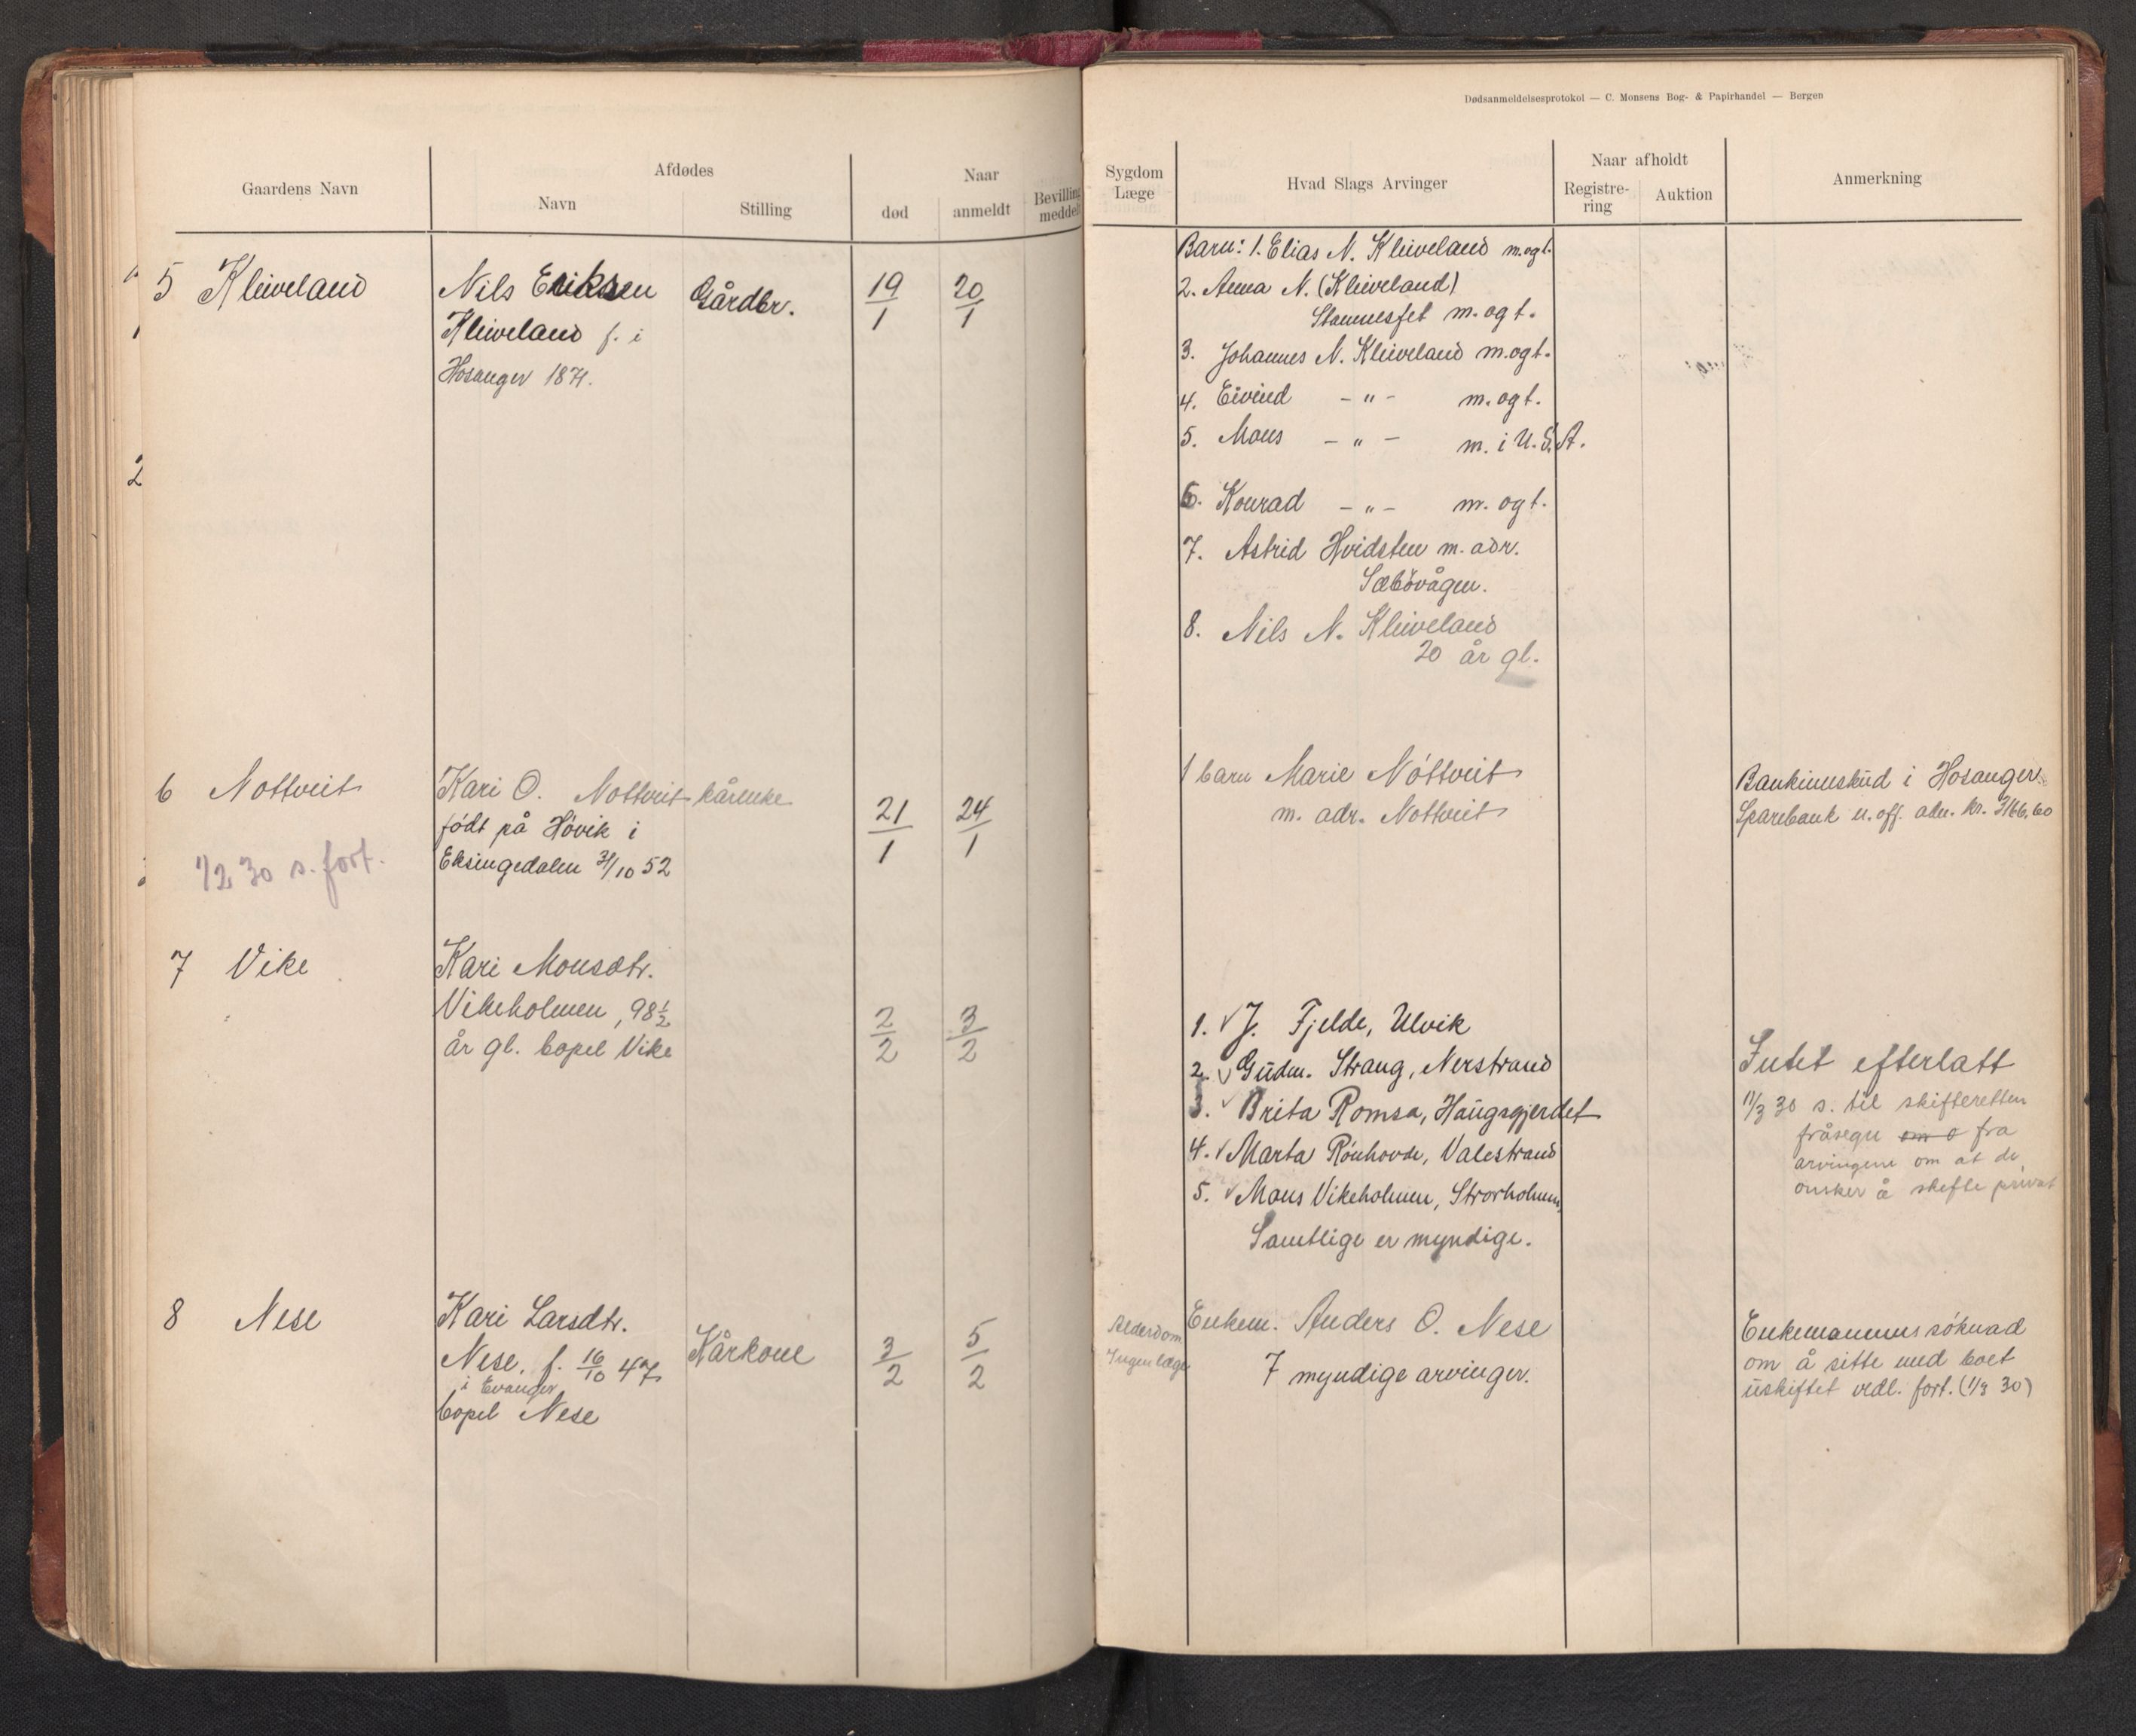 Dødsanmeldelsesprotokol — C. Monsens Bog- & Papirhandel — Bergen
Gaardens Navn
Afdødes
Navn
Stilling
Naar
død
anmeldt
Bevilling
meddelt
Sygdom
Læge
Hvad Slags Arvinger
Naar afholdt
Registre-
ring
Auktion
Anmerkning
5 Kleiveland
Nils Eriksen
Kleiveland f. i
Hosanger 1871.
Gårdbr.
19/1
20/1
Barn: 1. Elias N. Kleiveland m.ogt.
2. Anna N. (Kleiveland)
Stamnesfet m. ogt.
3. Johannes N. Kleiveland m.ogt.
4. Eivind -"- m. ogt.
5. Mons -"- m. i U.S.A.
6. Konrad -"- m. ogt.
7. Astrid Hvidsten m. adr.
Sæbövågen.
8. Nils N. Kleiveland
20 år gl.
6 Nottveit
1/2 30 s. fort.
Kari O. Nottveit
födt på Hövik i
Eksingedalen 31/10 52
kårenke
21/1
24/1
1 barn Marie Nöttveit
m. adr. Nottveit
Bankinnskud i Hosanger
Sparebank u. off. adm. kr. 3166,60
7 Vike
Kari Monsdtr.
Vikeholmen, 98½
år gl. bopel Vike
2/2
3/2
1. √ J. Fjelde, Ulvik
2. √ Gudm. Strang, Nerstrand
3. √ Brita Romsa, Haugsgjerdet
4. √ Marta Rönhovde, Valestrand
5. √ Mons Vikeholmen, Strorholmen,
Samtlige er myndige.
Intet efterlatt
11/3 30 s. til skifteretten
fråsegn om o fra
arvingene om at de
önsker å skifte privat
8 Nese
Kari Larsdtr.
Nese. f. 16/10 47
i Evanger
bopel Nese
Kårkone
3/2
5/2
Alderdom
Ingen læge
Enkem. Anders O. Nese
7 myndige arvinger.
Enkemannens söknad
om å sitte med boet
uskiftet vedl. fort. (1/3 30)